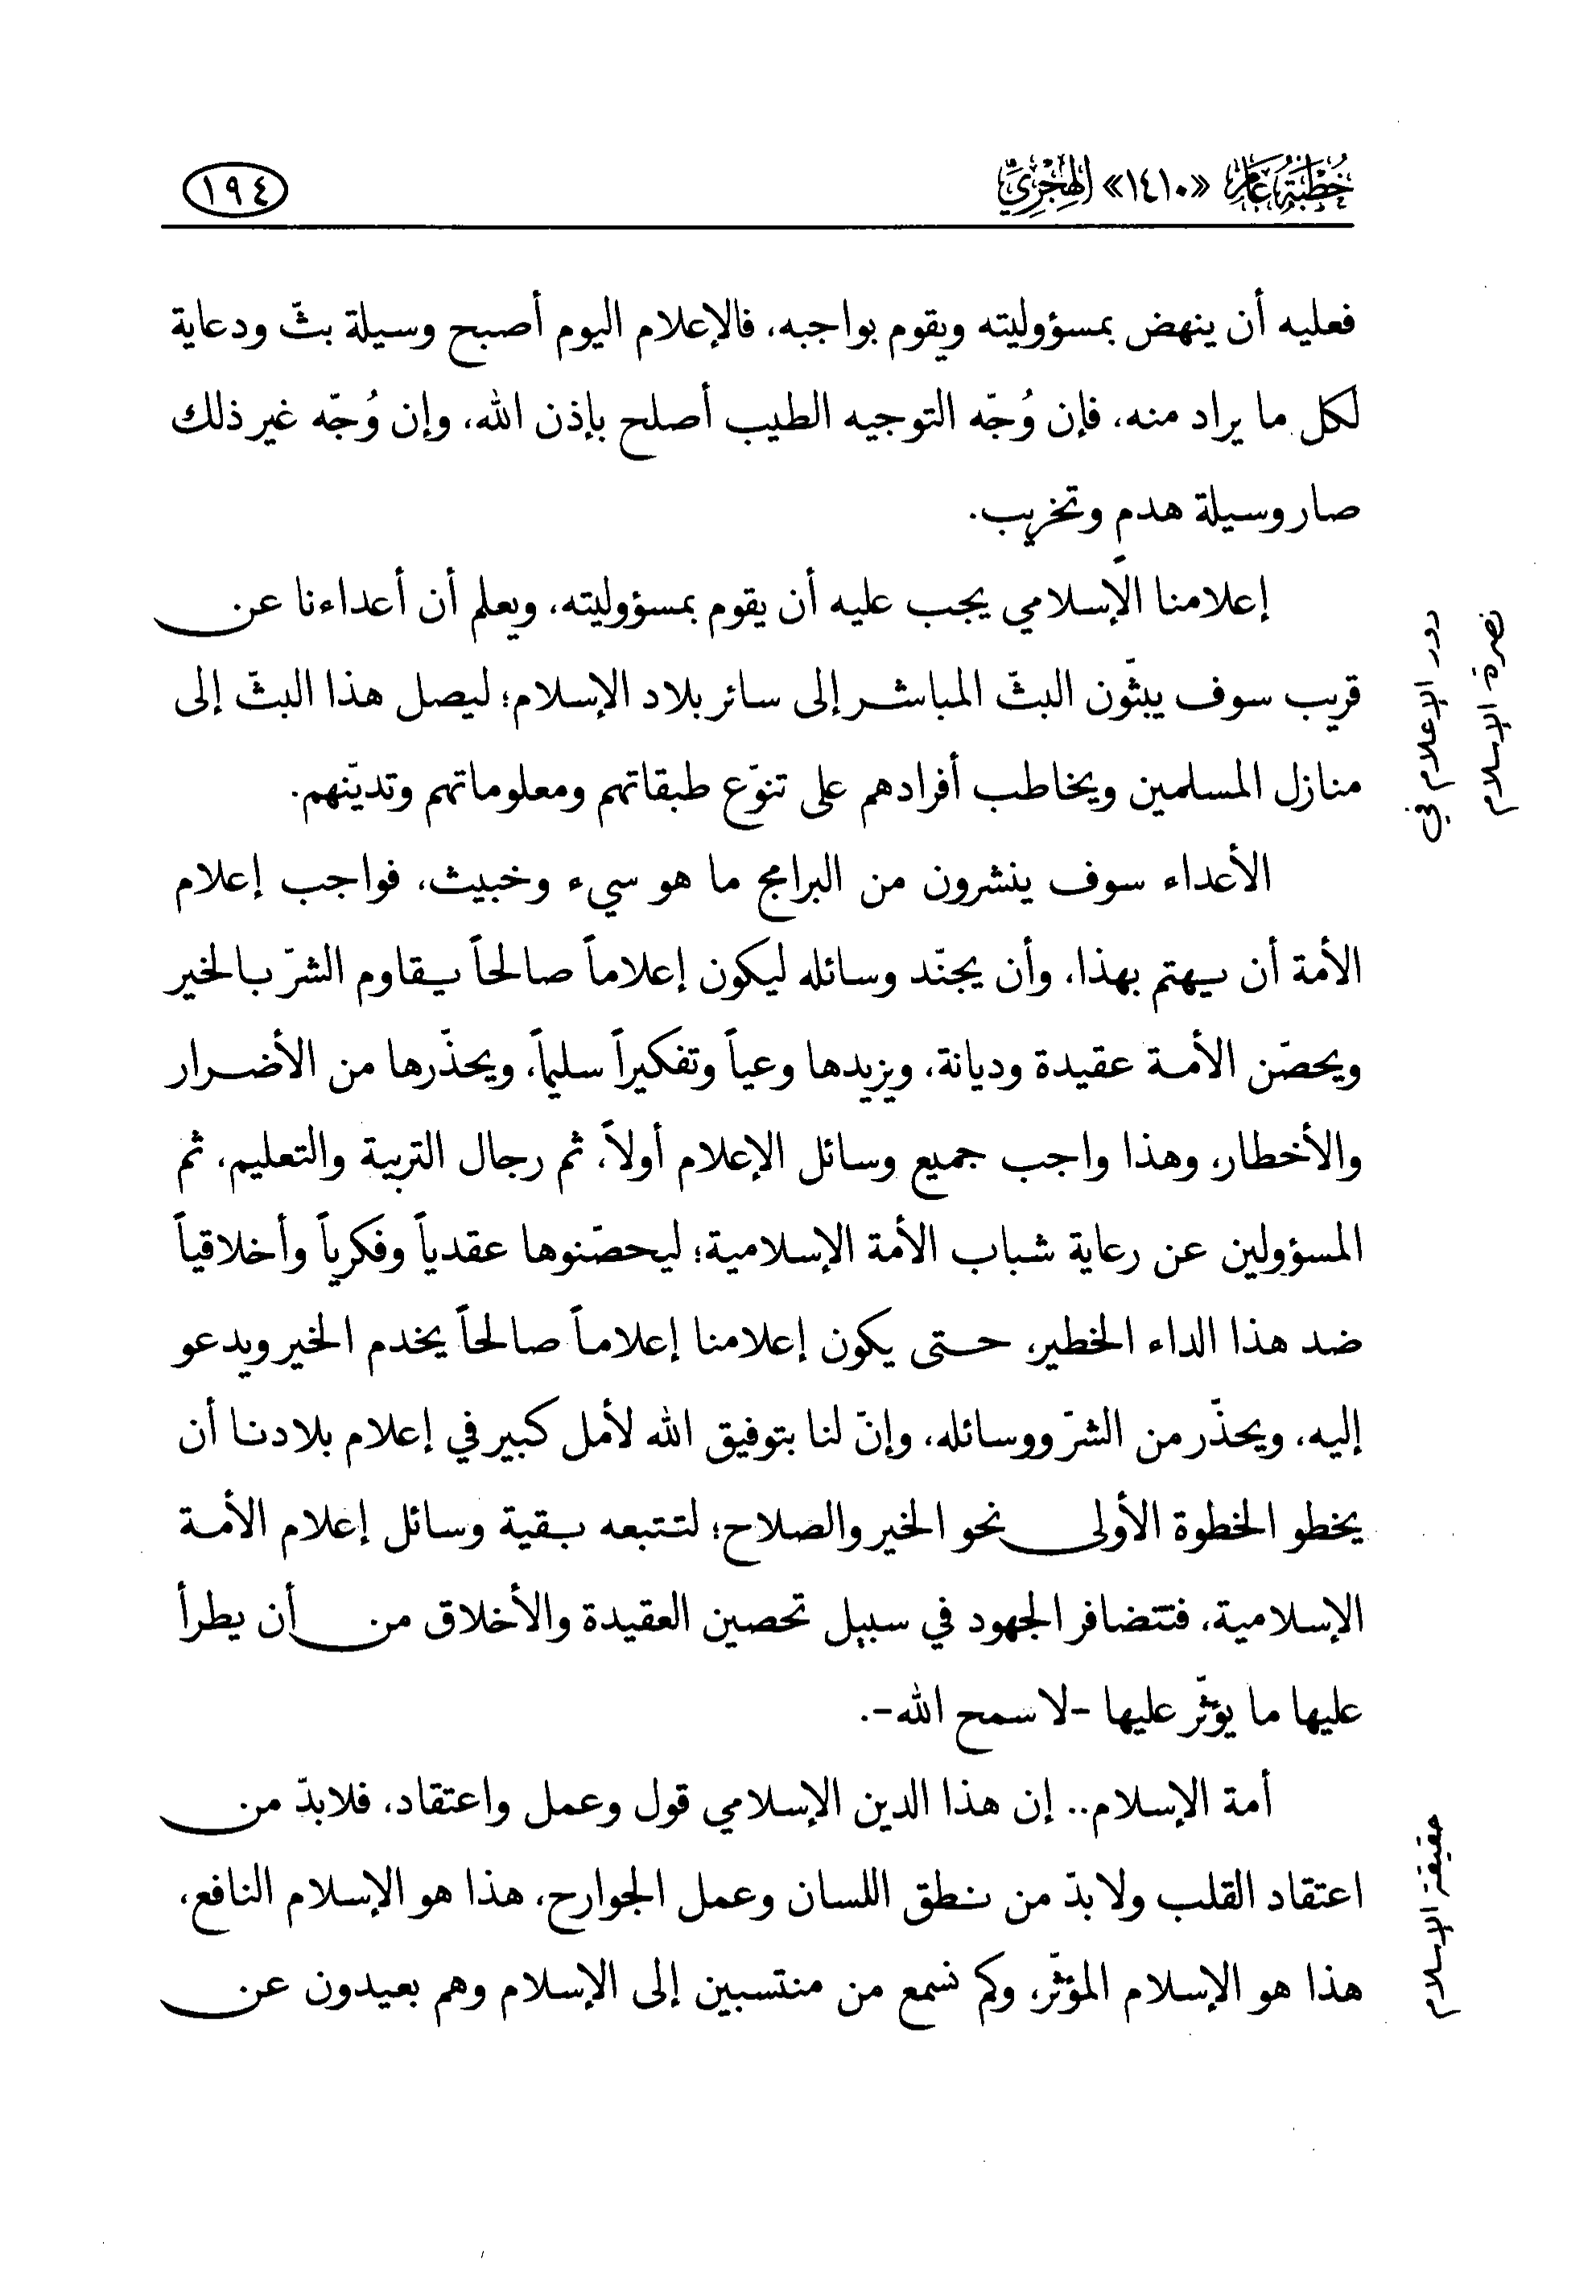 خُطْبَةُ عَام «١٤١٠» الهِجْرِيِّ
١٩٤
فعليه أن ينهض بمسؤوليته ويقوم بواجبه، فالإعلام اليوم أصبح وسيلة بثّ ودعاية
لكل ما يراد منه، فإن وُجّه التوجيه الطيب أصلح بإذن الله، وإن وُجّه غير ذلك
صار وسيلة هدم وتخريب.
إعلامنا الإسلامي يجب عليه أن يقوم بمسؤوليته، ويعلم أن أعداءنا عن
قريب سوف يبثّون البثّ المباشر إلى سائر بلاد الإسلام؛ ليصل هذا البثّ إلى
منازل المسلمين ويخاطب أفرادهم على تنوّع طبقاتهم ومعلوماتهم وتديّنهم.
الأعداء سوف ينشرون من البرامج ما هو سيء وخبيث، فواجب إعلام
الأمة أن يهتم بهذا، وأن يجنّد وسائله ليكون إعلاماً صالحاً يقاوم الشرّ بالخير
ويحصّن الأمة عقيدة وديانة، ويزيدها وعياً وتفكيراً سليماً، ويحذّرها من الأضرار
والأخطار، وهذا واجب جميع وسائل الإعلام أولاً، ثم رجال التربية والتعليم، ثم
المسؤولين عن رعاية شباب الأمة الإسلامية؛ ليحصّنوها عقدياً وفكرياً وأخلاقياً
ضد هذا الداء الخطير، حتى يكون إعلامنا إعلاماً صالحاً يخدم الخير ويدعو
إليه، ويحذّر من الشرّ ووسائله، وإنّ لنا بتوفيق الله لأمل كبير في إعلام بلادنا أن
يخطو الخطوة الأولى نحو الخير والصلاح؛ لتتبعه بقية وسائل إعلام الأمة
الإسلامية، فتتضافر الجهود في سبيل تحصين العقيدة والأخلاق من أن يطرأ
عليها ما يؤثّر عليها -لا سمح الله-.
أمة الإسلام.. إن هذا الدين الإسلامي قول وعمل واعتقاد، فلابدّ من
اعتقاد القلب ولابدّ من نطق اللسان وعمل الجوارح، هذا هو الإسلام النافع،
هذا هو الإسلام المؤثّر، وكم نسمع من منتسبين إلى الإسلام وهم بعيدون عن
دور الإعلام في
نصرة الإسلام
حقيقة الإسلام